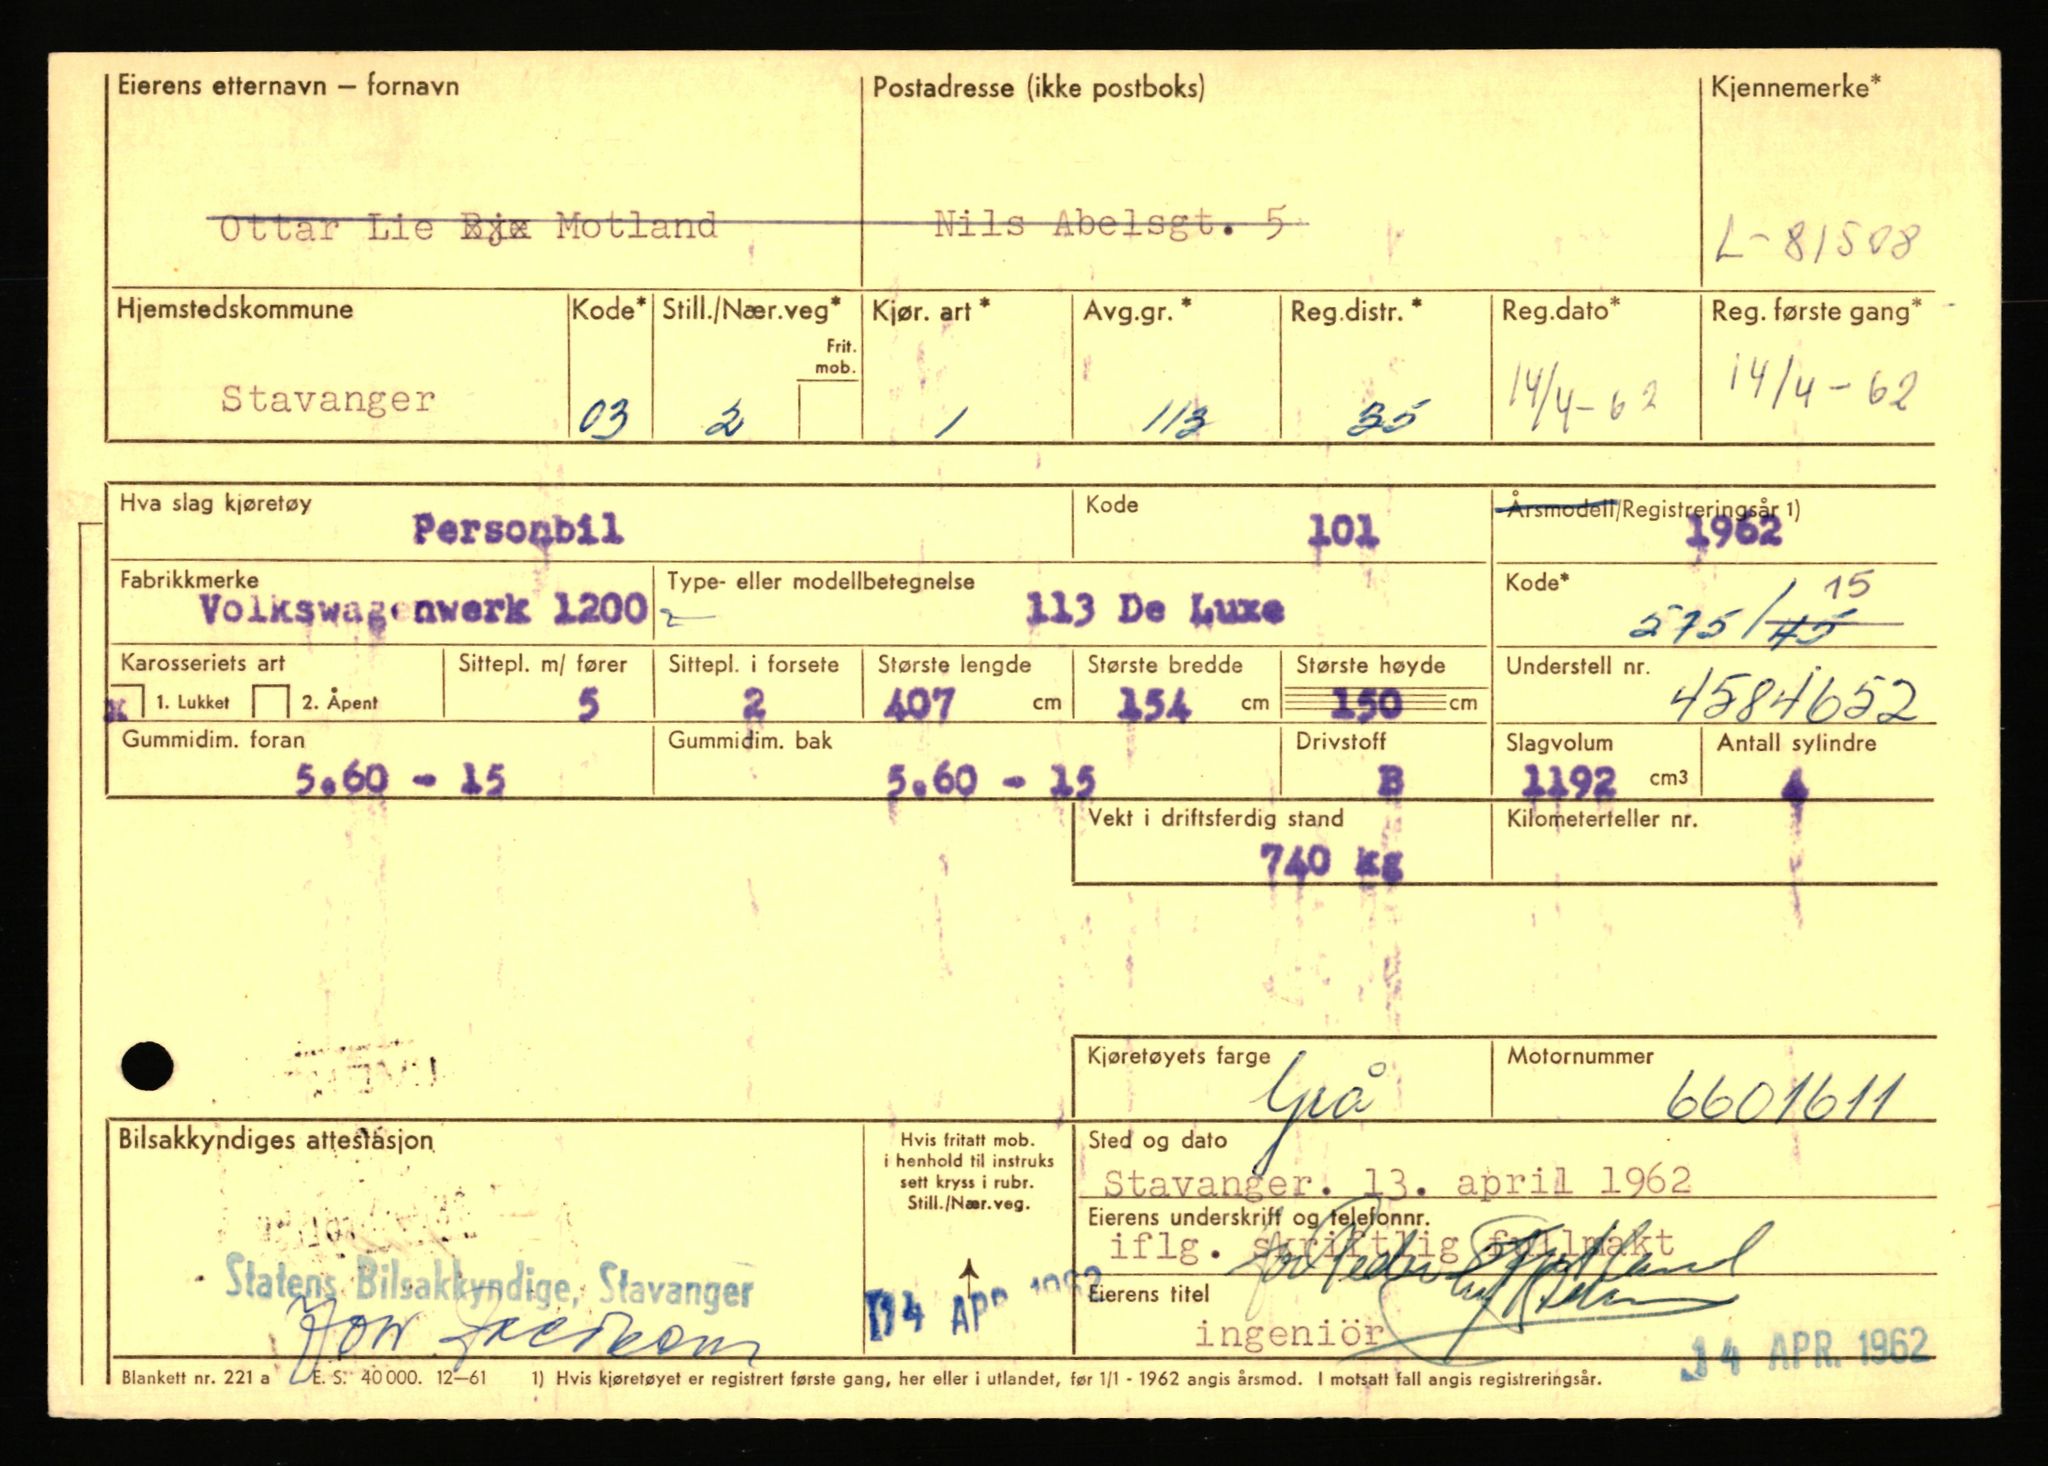 Eierens etternavn – fornavn Postadresse (ikke postboks) Kjennemerke*
Ottar Lie Motland Nils Abelsgt. 5 L-81508
Hjemstedskommune Kode* Still./Nær.veg* Kjør. art * Avg.gr. * Reg.distr. * Reg.dato* Reg. første gang*
Frit.
mob.
Stavanger 03 2 1 113 35 14/4-62 14/4-62
Hva slag kjøretøy Kode Årsmodell/Registreringsår 1)
Personbil 101 1962
Fabrikkmerke Type- eller modellbetegnelse Kode*
Volkswagenwerk 1200 113 De Luxe 575/45 15
Karosseriets art Sittepl. m/ fører Sittepl. i forsete Største lengde Største bredde Største høyde Understell nr.
x 1. Lukket 2. Åpent 5 2 407 cm 154 cm 150 cm 4584652
Gummidim. foran Gummidim. bak Drivstoff Slagvolum Antall sylindre
5.60 - 15 5.60 - 15 B 1192 cm3 4
Vekt i driftsferdig stand Kilometerteller nr.
740 kg
Kjøretøyets farge Motornummer
Grå 6601611
Bilsakkyndiges attestasjon Hvis fritatt mob. Sted og dato
i henhold til instruks
sett kryss i rubr. Stavanger. 13. april 1962
Still./Nær.veg.
Eierens underskrift og telefonnr.
iflg. skriftlig fullmakt
Statens Bilsakkyndige, Stavanger
14 APR 1962
Eierens titel
ingeniör
14 APR. 1962
Blankett nr. 221 a E. S. 40 000. 12–61 1) Hvis kjøretøyet er registrert første gang, her eller i utlandet, før 1/1 - 1962 angis årsmod. I motsatt fall angis registreringsår.